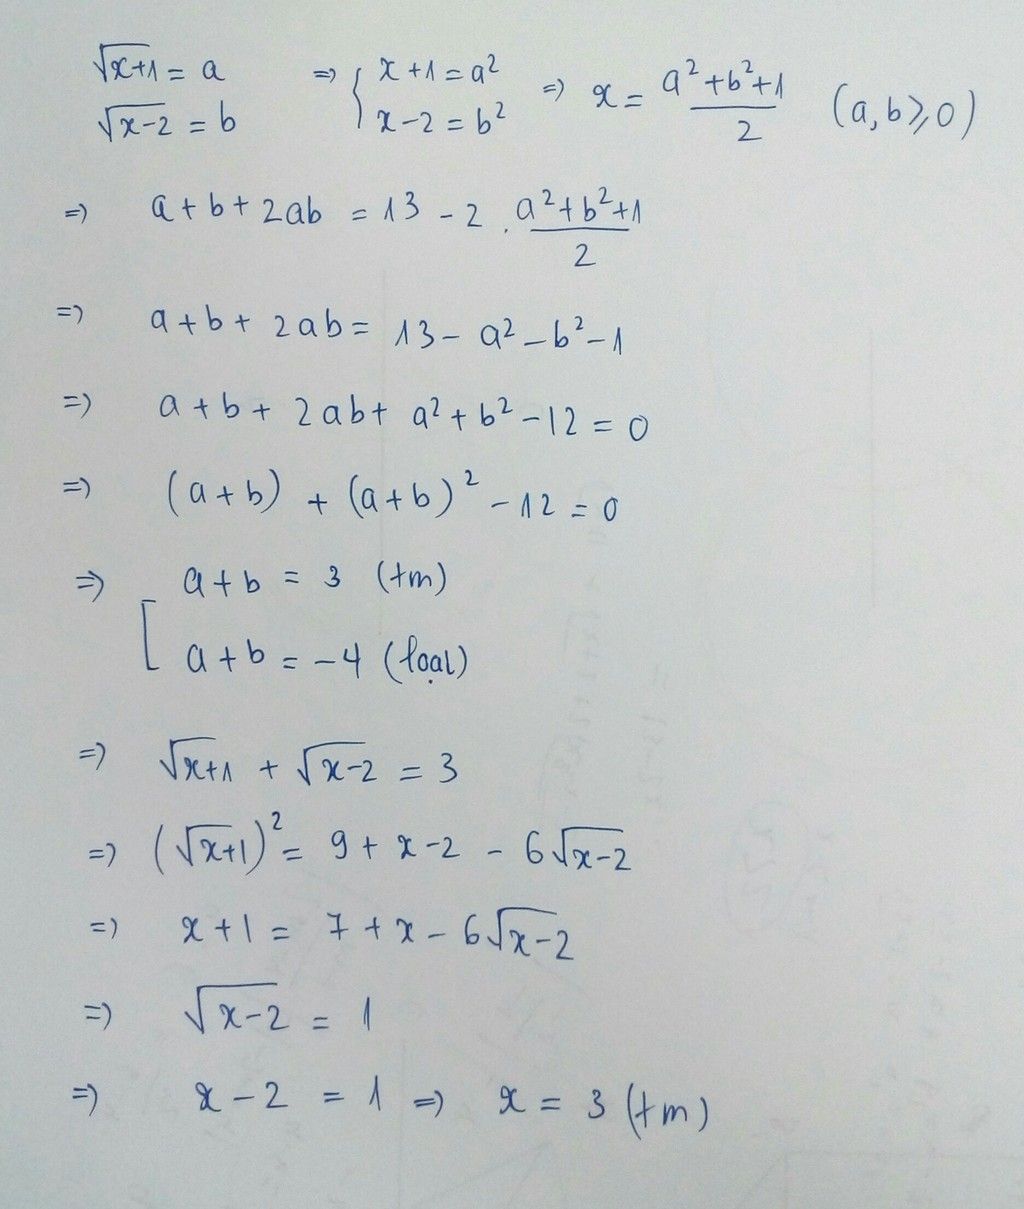 √x+1 = a ⇒ { x+1 = a² ⇒ x = (a²+b²+1)/2 (a,b⩾0)
√x-2 = b x-2 = b²
⇒ a+b+2ab = 13 - 2 . (a²+b²+1)/2
⇒ a+b+ 2ab = 13 - a² - b² - 1
⇒ a+b+ 2ab+ a²+b² -12 = 0
⇒ (a+b) + (a+b)² - 12 = 0
⇒ [ a+b = 3 (tm)
a+b = -4 (loại)
⇒ √x+1 + √x-2 = 3
⇒ (√x+1)² = 9 + x-2 - 6√x-2
⇒ x+1 = 7+x - 6√x-2
⇒ √x-2 = 1
⇒ x-2 = 1 ⇒ x = 3 (tm)